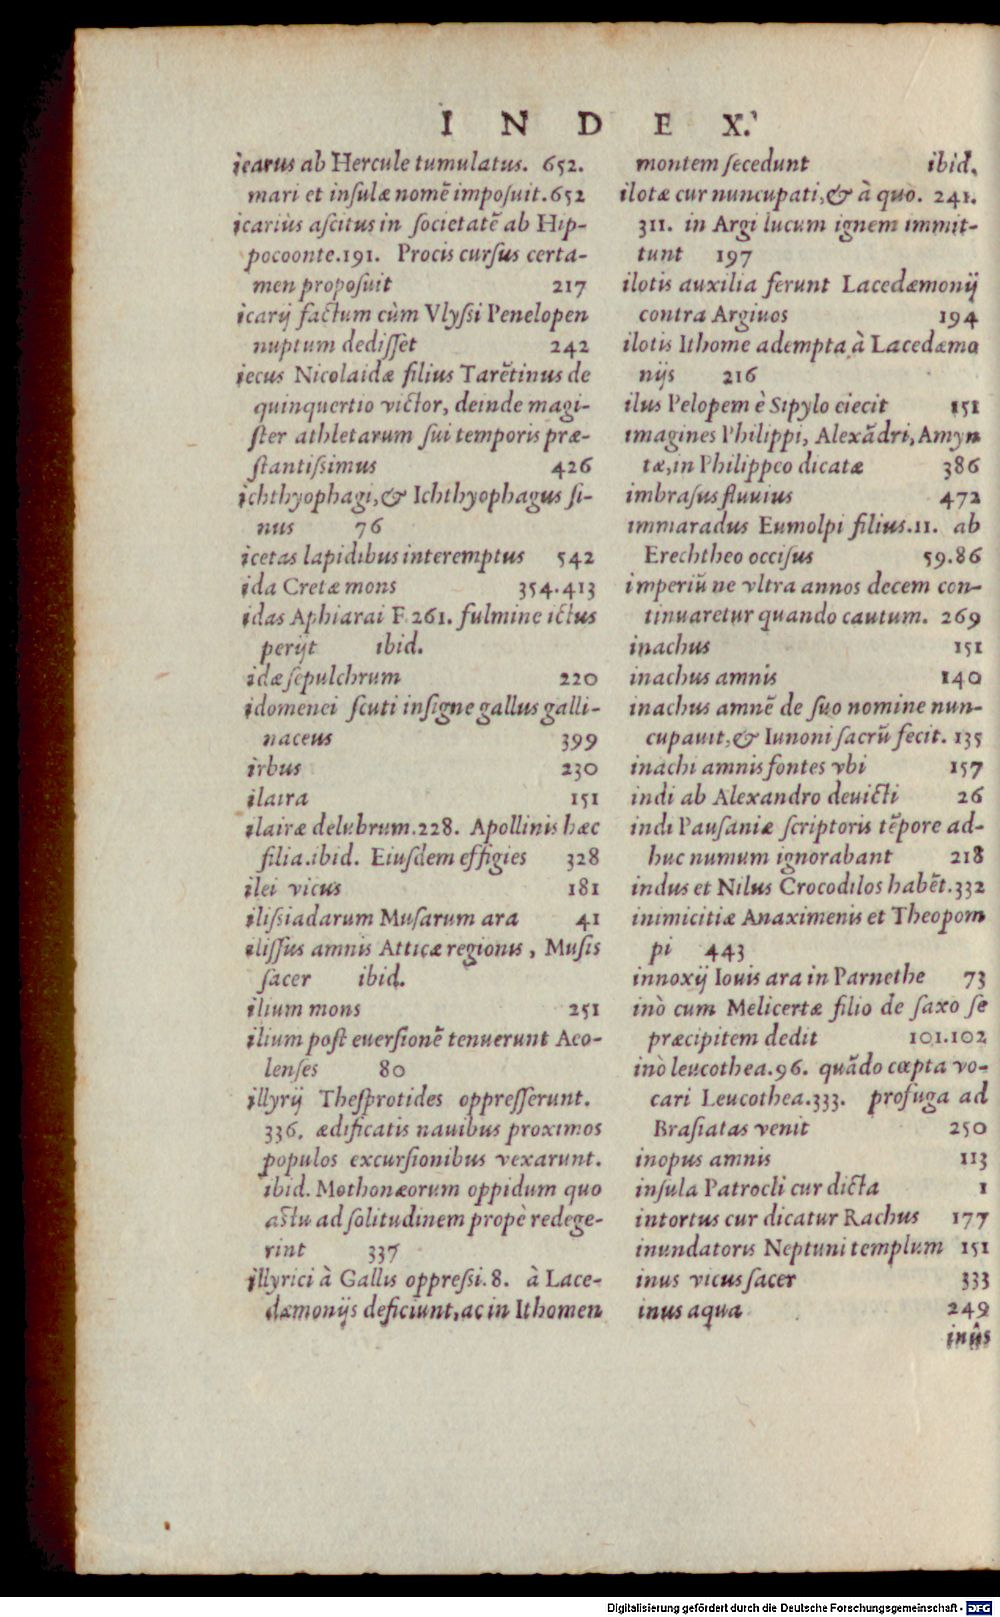 INDEX.
icarus ab Hercule tumulatus. 652.
mari et insulæ nomē imposuit. 652
icariùs ascitus in societatē ab Hip-
pocoonte. 191. Procis cursus certa-
men proposuit 217
icarij factum cùm Vlyssi Penelopen
nuptum dedisset 242
iecus Nicolaidæ filius Tarētinus de
quinquertio victor, deinde magi-
ster athletarum sui temporis præ-
stantissimus 426
ichthyophagi, & Ichthyophagus si-
nus 76
icetas lapidibus interemptus 542
ida Cretæ mons 354.413
idas Aphiarai F. 261. fulmine ictus
perijt ibid.
idæ sepulchrum 220
idomenei scuti insigne gallus galli-
naceus 399
irbus 230
ilaira 151
ilairæ delubrum. 228. Apollinis hæc
filia. ibid. Eiusdem effigies 328
ilei vicus 181
ilissiadarum Musarum ara 41
ilissus amnis Atticæ regionis, Musis
sacer ibid.
ilium mons 251
ilium post euersionē tenuerunt Aeo-
lenses 80
illyrij Thesprotides oppresserunt.
336. ædificatis nauibus proximos
populos excursionibus vexarunt.
ibid. Mothonæorum oppidum quo
astu ad solitudinem propè redege-
rint 337
illyrici à Gallis oppressi. 8. à Lace-
dæmonijs deficiunt, ac in Ithomen
montem secedunt ibid.
ilotæ cur nuncupati, & à quò. 241.
311. in Argi lucum ignem immit-
tunt 197
ilotis auxilia ferunt Lacedæmonij
contra Argiuos 194
ilotis Ithome adempta à Lacedæmo
nijs 216
ilus Pelopem è Sipylo eiecit 151
imagines Philippi, Alexādri, Amyn
tæ, in Philippeo dicatæ 386
imbrasus fluuius 472
immaradus Eumolpi filius. 11. ab
Erechtheo occisus 59.86
imperiū ne vltra annos decem con-
tinuaretur quando cautum. 269
inachus 151
inachus amnis 140
inachus amnē de suo nomine nun-
cupauit, & Iunoni sacrū fecit. 135
inachi amnis fontes vbi 157
indi ab Alexandro deuicti 26
indi Pausaniæ scriptoris tēpore ad-
huc numum ignorabant 218
indus et Nilus Crocodilos habēt. 332
inimicitiæ Anaximenis et Theopom
pi 443
innoxij Iouis ara in Parnethe 73
inò cum Melicertæ filio de saxo se
præcipitem dedit 101.102
inò leucothea. 96. quādo cœpta vo-
cari Leucothea. 333. profuga ad
Brasiatas venit 250
inopus amnis 113
insula Patrocli cur dicta 1
intortus cur dicatur Rachus 177
inundatoris Neptuni templum 151
inus vicus sacer 333
inus aqua 249
inûs
Digitalisierung gefördert durch die Deutsche Forschungsgemeinschaft - DFG